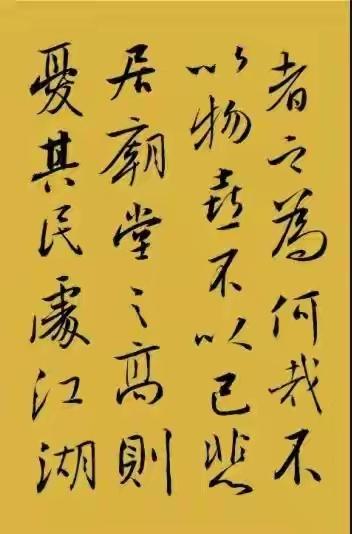 者之為何哉不
以物喜不以己悲
居廟堂之高則
憂其民處江湖